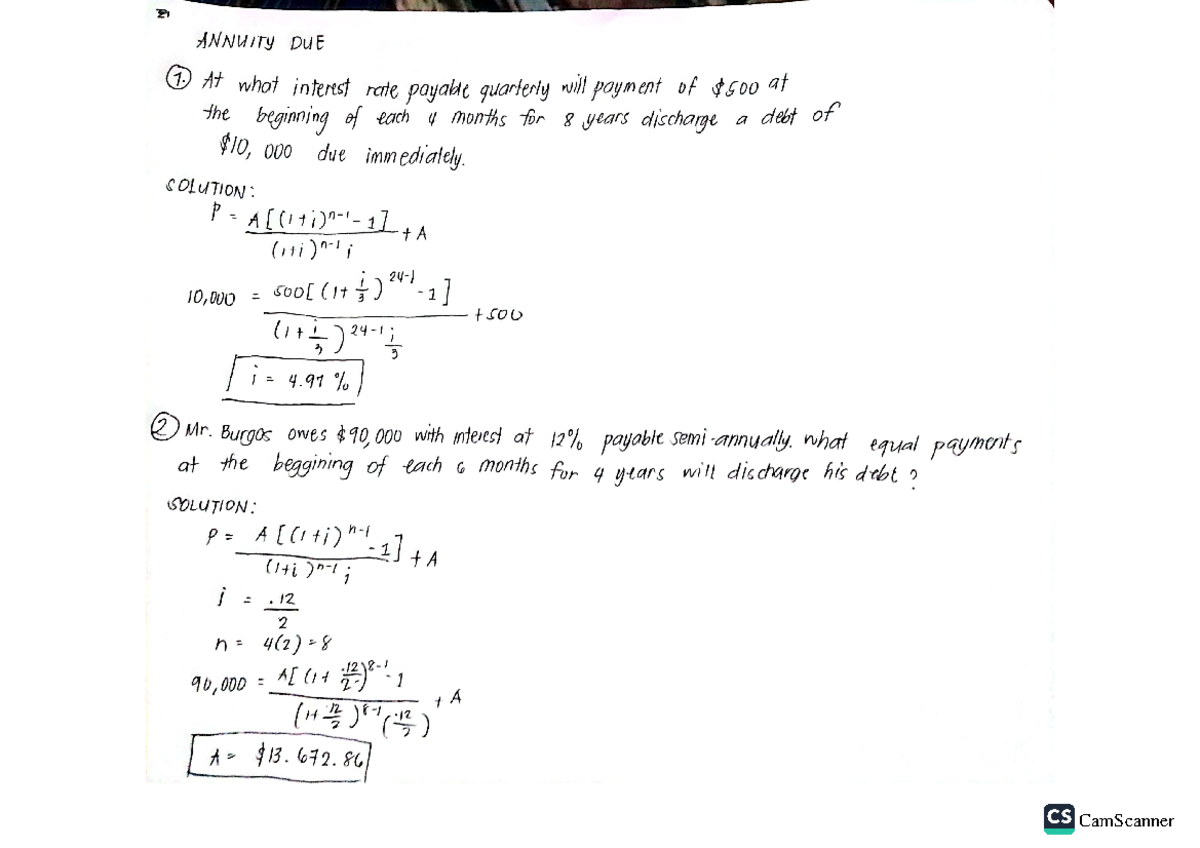 ANNUITY DUE
1. At what interest rate payable quarterly will payment of $500 at
the beginning of each 4 months for 8 years discharge a debt of
$10, 000 due immediately.
SOLUTION:
P = A[(1+i)^n-1 - 1] + A
(1+i)^n-1 i
10,000 = 500[(1+ i/3)^24-1 - 1] + 500
(1+ i/3)^24-1 i/3
i = 4.97 %
2 Mr. Burgos owes $90,000 with interest at 12% payable semi-annually. what equal payments
at the beggining of each 6 months for 4 years will discharge his debt ?
SOLUTION:
P = A[(1+i)^n-1 - 1] + A
(1+i)^n-1 i
i = .12/2
n = 4(2) = 8
90,000 = A[(1+ .12/2)^8-1 - 1 + A
(1+ .12/2)^8-1 (.12/2)
A = $13.672.86
CS CamScanner